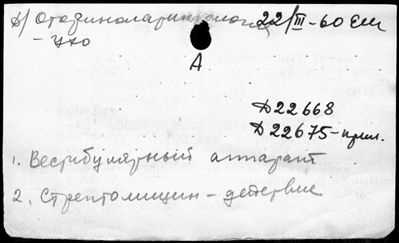 б) Отоларингология 22/III-60 Ем
- Ухо
А
Д22668
Д22675-прил.
1. Вестибулярный аппарат
2. Стрептомицин - действие